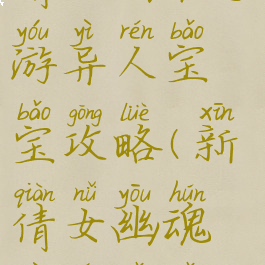 yóu yì rén bǎo
游异人宝
bǎo gōng lüè xīn
宝攻略(新
qiàn nǚ yōu hún
倩女幽魂